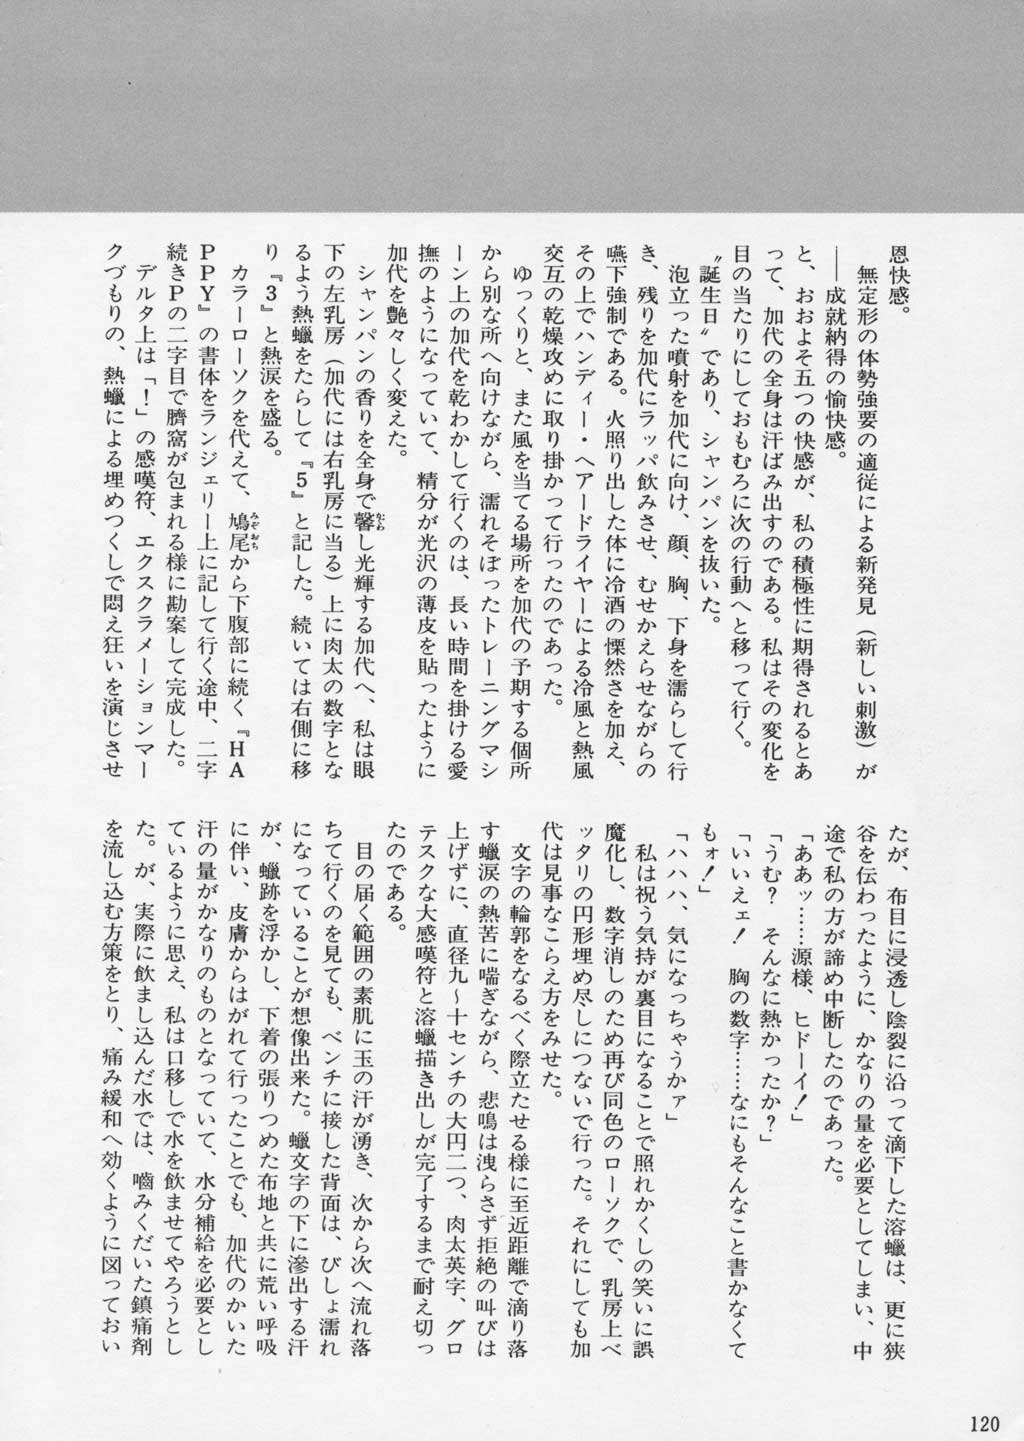 恩快感。
　無定形の体勢強要の適従による新発見（新しい刺激）が
――成就納得の愉快感。
と、おおよそ五つの快感が、私の積極性に期待されるとあ
って、加代の全身は汗ばみ出すのである。私はその変化を
目の当たりにしておもむろに次の行動へと移って行く。
〝誕生日〟であり、シャンパンを抜いた。
　泡立った噴射を加代に向け、顔、胸、下身を濡らして行
き、残りを加代にラッパ飲みさせ、むせかえらせながらの
嚥下強制である。火照り出した体に冷酒の慄然さを加え、
その上でハンディー・ヘアードライヤーによる冷風と熱風
交互の乾燥攻めに取り掛かって行ったのであった。
　ゆっくりと、また風を当てる場所を加代の予期する個所
から別な所へ向けながら、濡れそぼったトレーニングマシ
ーン上の加代を乾わかして行くのは、長い時間を掛ける愛
撫のようになっていて、精分が光沢の薄皮を貼ったように
加代を艶々しく変えた。
　シャンパンの香りを全身で馨し光輝する加代へ、私は眼
下の左乳房（加代には右乳房に当る）上に肉太の数字とな
るよう熱蠟をたらして『5』と記した。続いては右側に移
り『3』と熱涙を盛る。
　カラーローソクを代えて、鳩尾から下腹部に続く『HA
PPY』の書体をランジェリー上に記して行く途中、二字
続きPの二字目で臍窩が包まれる様に勘案して完成した。
　デルタ上は「！」の感嘆符、エクスクラメーションマー
クづもりの、熱蠟による埋めつくしで悶え狂いを演じさせ
たが、布目に浸透し陰裂に沿って滴下した溶蠟は、更に狭
谷を伝わったように、かなりの量を必要としてしまい、中
途で私の方が諦め中断したのであった。
「ああッ……源様、ヒドーイ！」
「うむ？　そんなに熱かったか？」
「いいえェ！　胸の数字……なにもそんなこと書かなくて
もォ！」
「ハハハ、気になっちゃうかァ」
　私は祝う気持が裏目になることで照れかくしの笑いに誤
魔化し、数字消しのため再び同色のローソクで、乳房上ベ
ッタリの円形埋め尽しにつないで行った。それにしても加
代は見事なこらえ方をみせた。
　文字の輪郭をなるべく際立たせる様に至近距離で滴り落
す蠟涙の熱苦に喘ぎながら、悲鳴は洩らさず拒絶の叫びは
上げずに、直径九～十センチの大円二つ、肉太英字、グロ
テスクな大感嘆符と溶蠟描き出しが完了するまで耐え切っ
たのである。
　目の届く範囲の素肌に玉の汗が湧き、次から次へ流れ落
ちて行くのを見ても、ベンチに接した背面は、びしょ濡れ
になっていることが想像出来た。蠟文字の下に滲出する汗
が、蠟跡を浮かし、下着の張りつめた布地と共に荒い呼吸
に伴い、皮膚からはがれて行ったことでも、加代のかいた
汗の量がかなりのものとなっていて、水分補給を必要とし
ているように思え、私は口移しで水を飲ませてやろうとし
た。が、実際に飲まし込んだ水では、嚙みくだいた鎮痛剤
を流し込む方策をとり、痛み緩和へ効くように図っておい
かおら
みぞおち
120